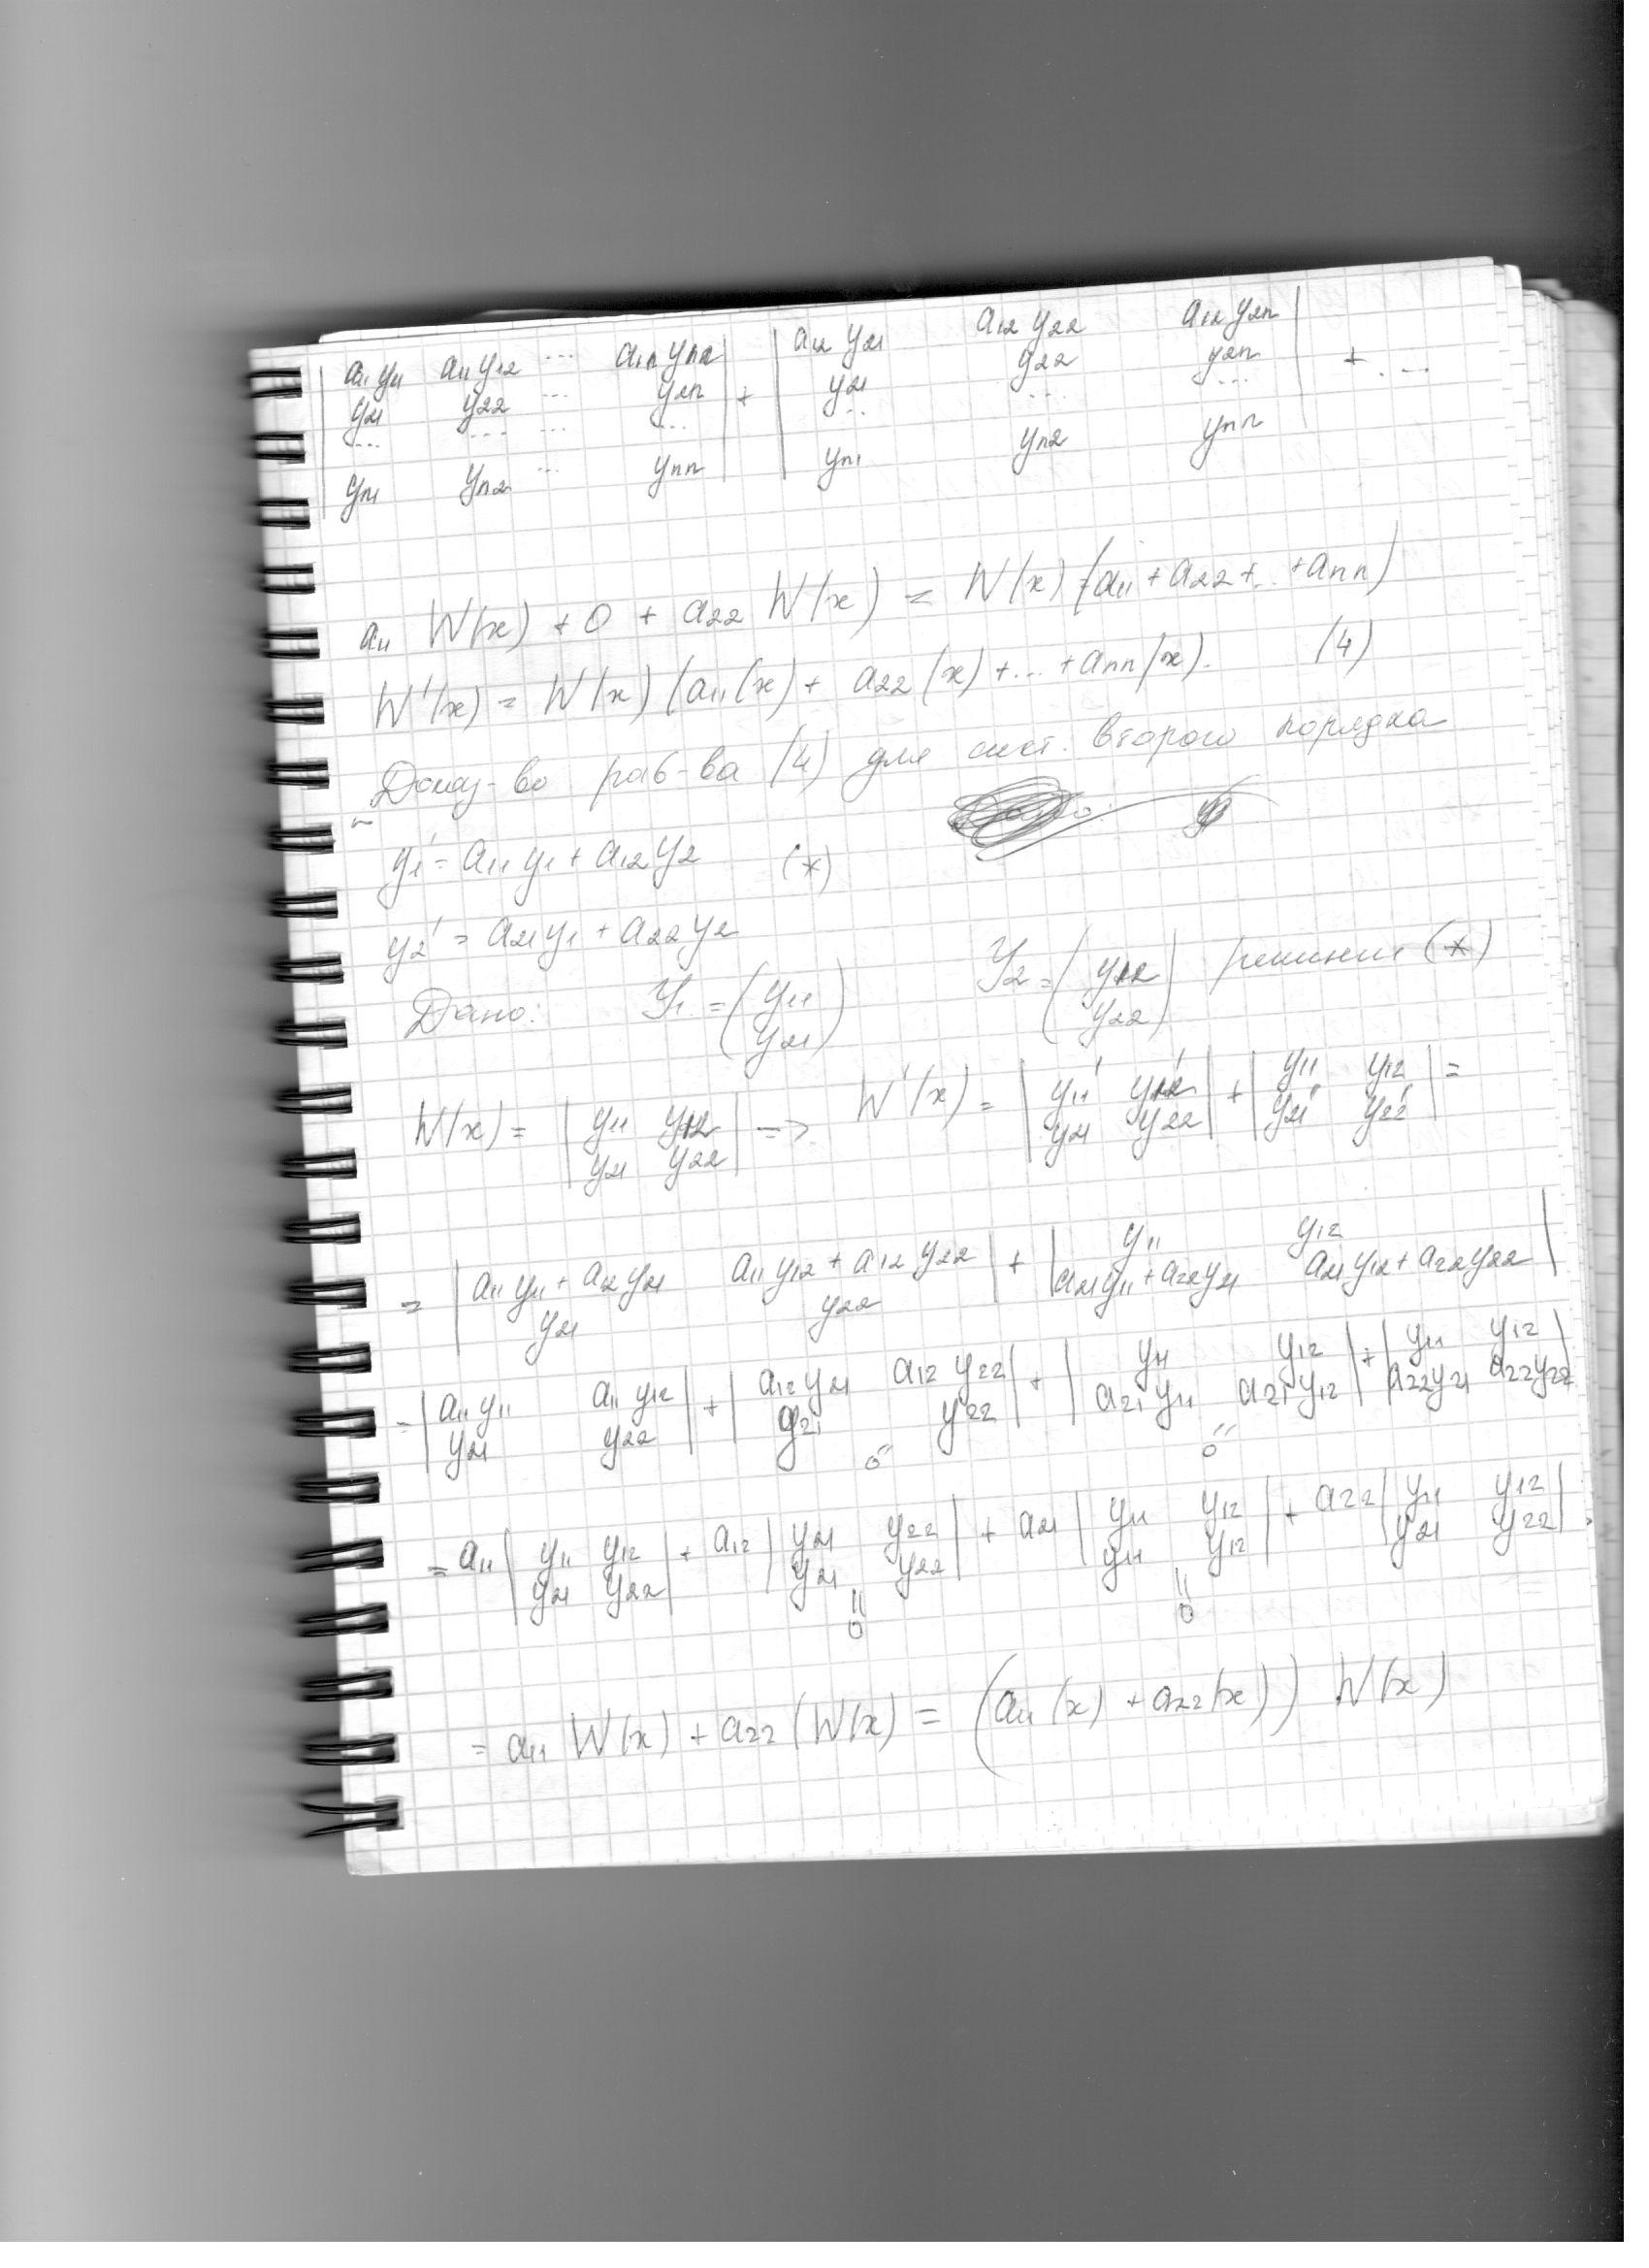 | a₁₁y₁₁ a₁₁y₁₂ ... a₁n ynn | + | a₁₂ y₂₁ a₁₂ y₂₂ a₁₂ y₂n | + ...
| y₂₁ y₂₂ ... y₂n | | y₂₁ y₂₂ y₂n |
| ... ... ... ... | | ... ... ... |
| yn₁ yn₂ ... ynn | | yn₁ yn₂ ynn |
a₁₁ W(x) + 0 + a₂₂ W(x) = W(x) (a₁₁ + a₂₂ + ... + ann)
W'(x) = W(x) (a₁₁(x) + a₂₂(x) + ... + ann(x). (4)
Доказ-во рав-ва (4) для сист. второго порядка
y₁' = a₁₁ y₁ + a₁₂ y₂ (*)
y₂' = a₂₁ y₁ + a₂₂ y₂
Дано: Y₁ = (y₁₁ y₂₁) Y₂ = (y₁₂ y₂₂) решения (*)
W(x) = | y₁₁ y₁₂ | => W'(x) = | y₁₁' y₁₂' | + | y₁₁ y₁₂ | =
| y₂₁ y₂₂ | | y₂₁ y₂₂ | | y₂₁' y₂₂' |
= | a₁₁ y₁₁ + a₁₂ y₂₁ a₁₁ y₁₂ + a₁₂ y₂₂ | + | y₁₁ y₁₂ |
| y₂₁ y₂₂ | | a₂₁ y₁₁ + a₂₂ y₂₁ a₂₁ y₁₂ + a₂₂ y₂₂ |
= | a₁₁ y₁₁ a₁₁ y₁₂ | + | a₁₂ y₂₁ a₁₂ y₂₂ | + | y₁₁ y₁₂ | + | y₁₁ y₁₂ |
| y₂₁ y₂₂ | | y₂₁ y₂₂ | | a₂₁ y₁₁ a₂₁ y₁₂ | | a₂₂ y₂₁ a₂₂ y₂₂ |
0" 0"
= a₁₁ | y₁₁ y₁₂ | + a₁₂ | y₂₁ y₂₂ | + a₂₁ | y₁₁ y₁₂ | + a₂₂ | y₁₁ y₁₂ |
| y₂₁ y₂₂ | | y₂₁ y₂₂ | | y₁₁ y₁₂ | | y₂₁ y₂₂ |
" 0 " 0
= a₁₁ W(x) + a₂₂ (W(x) = (a₁₁(x) + a₂₂(x)) W(x)